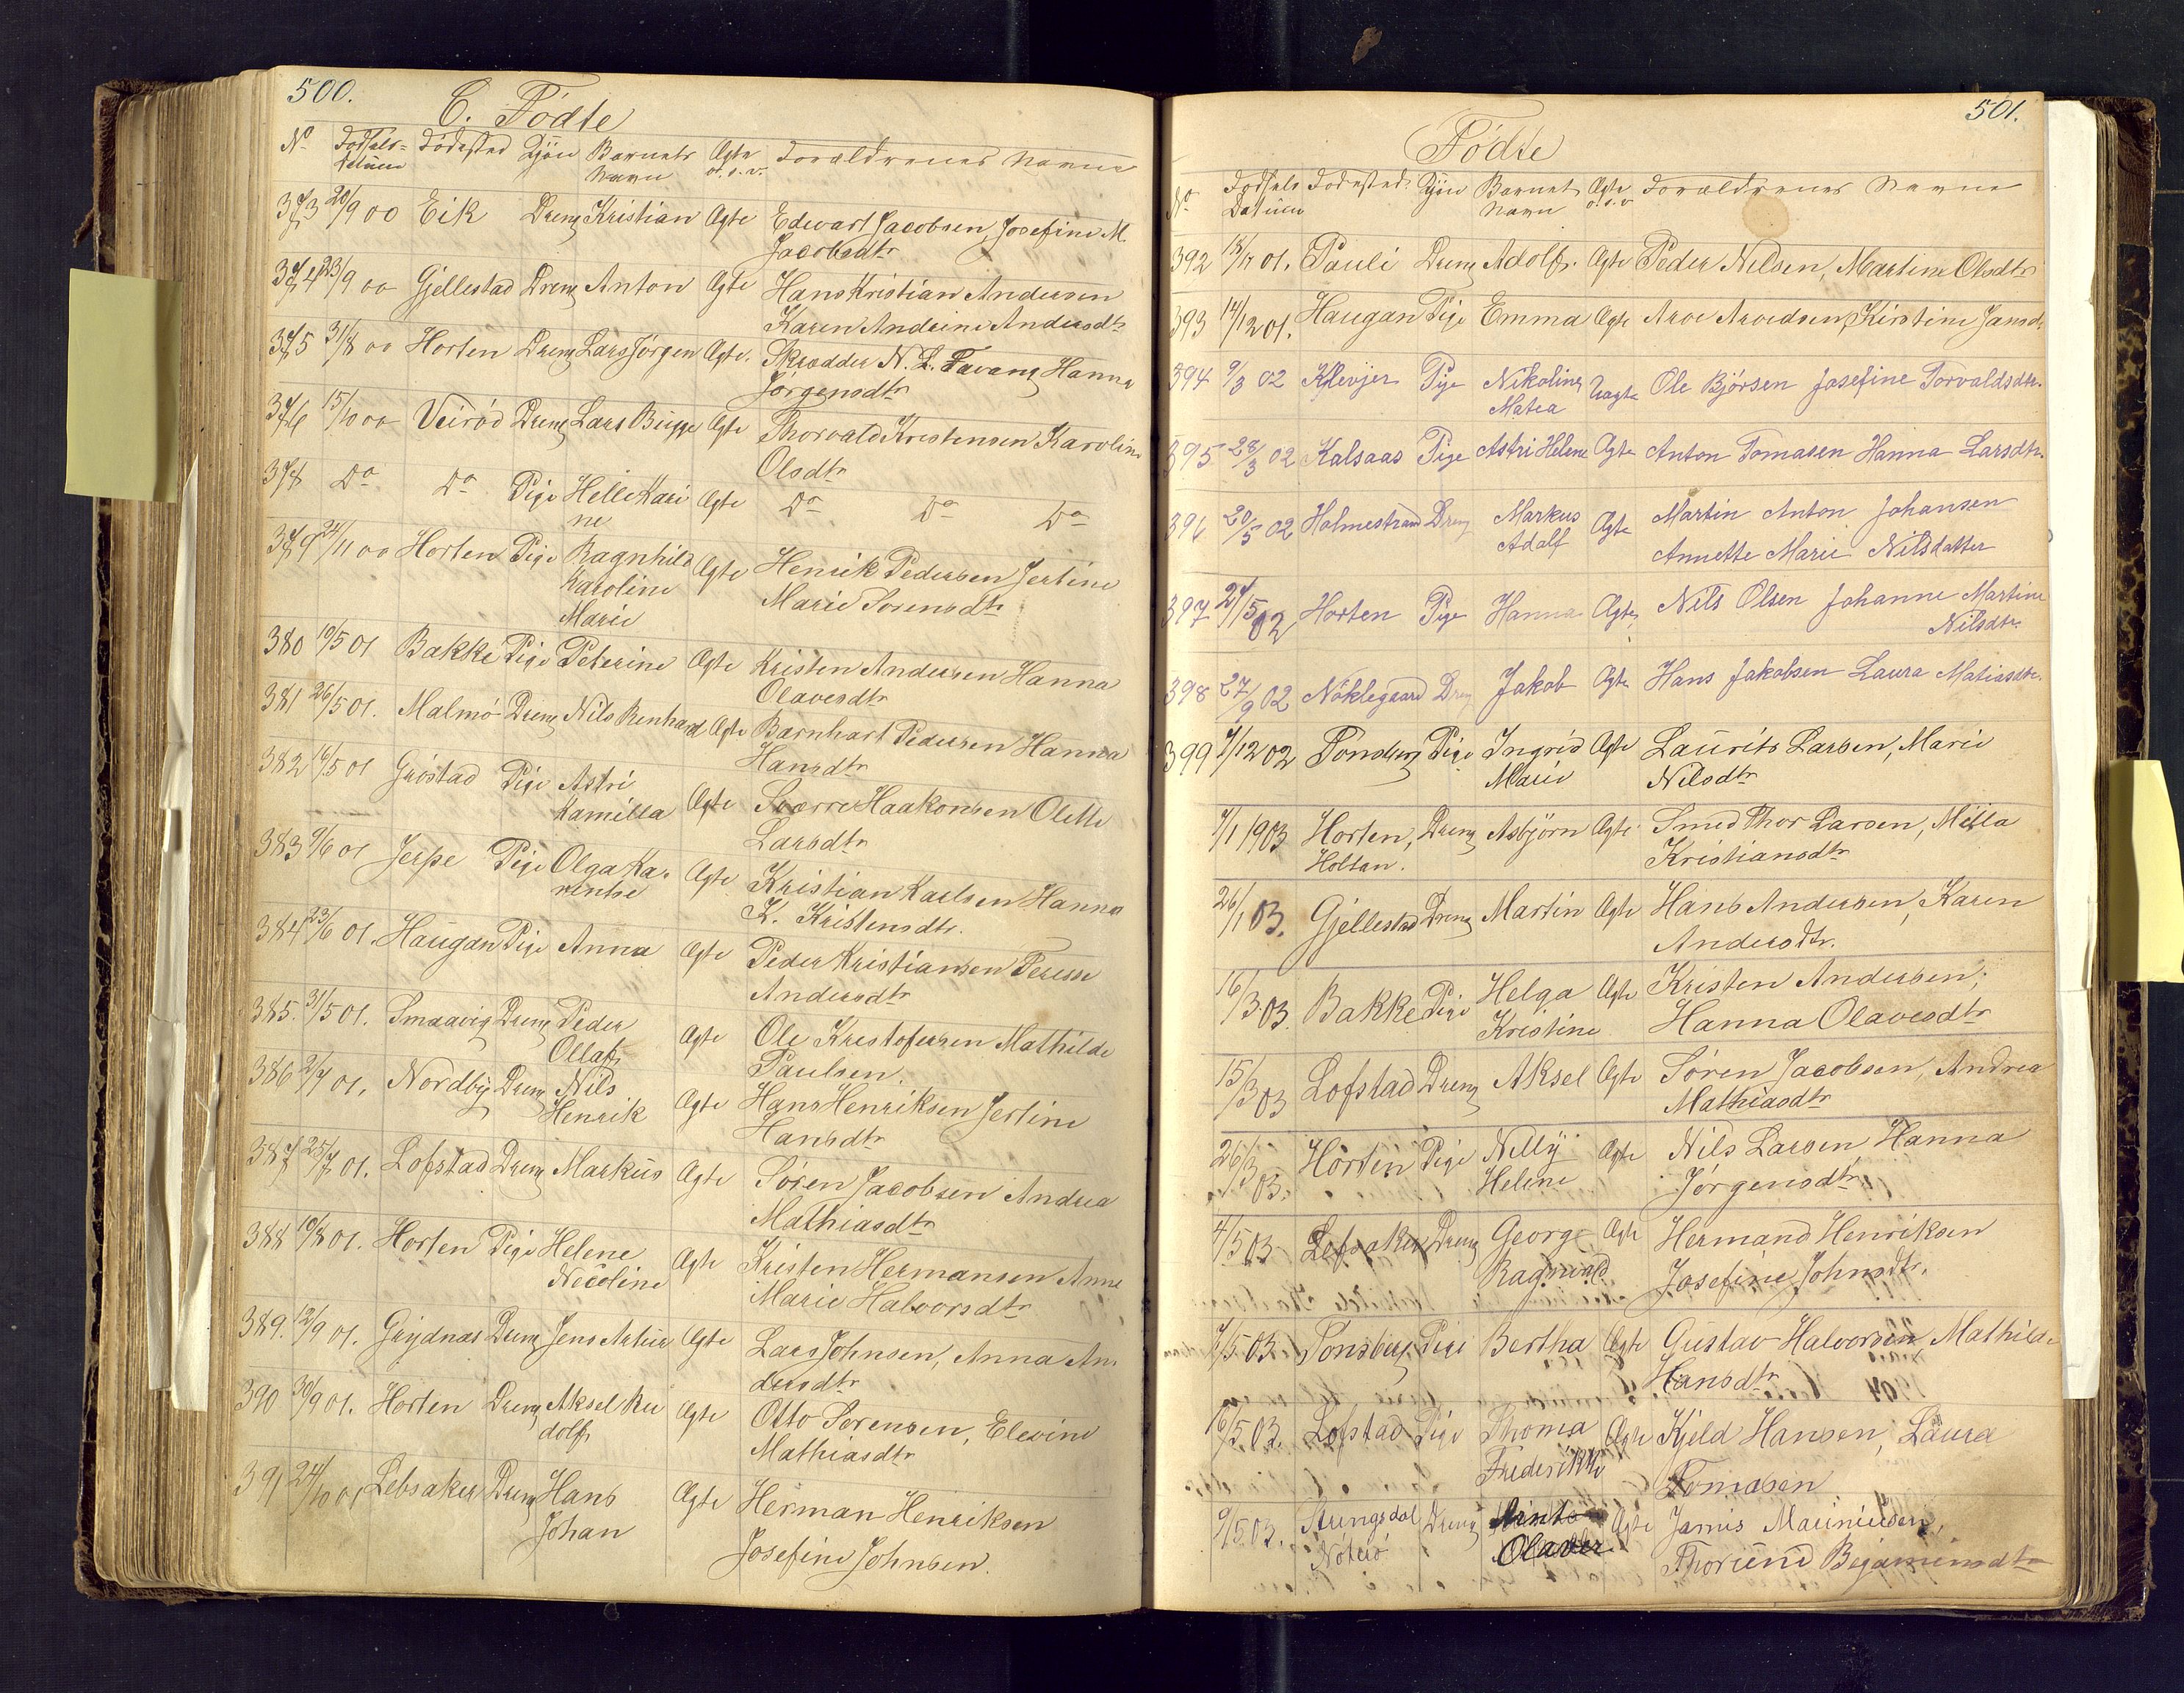 500.
C. Födte
No Födsels- Fødested Kjön Barnets Ægte Foraldrenes Navne
datum Navn o.s.v.
373 20/9 00 Eik Dreng Kristian Ægte Edvart Jacobsen, Josefine M.
Jacobsdtr
374 23/9 00 Gjellestad Dreng Anton Ægte Hans Kristian Andersen
Karen Andrine Andersdtr
375 31/8 00 Horten Dreng Lars Jörgen Ægte. Skrædder N. L. Tavang Hanna
Jörgensdtr
376 15/10 00 Veiröd Dreng Lars Bugge Ægte Thorvald Kristensen Karoline
Olsdtr
378 Do Do Pige Helle Kari Ægte Do Do Do
ne
379 24/11 00 Horten Pige Ragnhild Ægte Henrik Pedersen Jertine
Karoline Marie Sörensdtr
Marie
380 10/5 01 Bakke Pige Peterine Ægte Kristen Andersen Hanna
Olavesdtr
381 26/5 01. Malmö Dreng Nils Renhard Ægte Barnhart Pedersen Hanna
Hansdtr
382 16/5 01 Gröstad Pige Astri Ægte Sverre Haakonsen Olette
Kamilla Larsdtr
383 9/6 01 Jerpe Pige Olga Ka- Ægte Kristian Karlsen Hanna
rentse K. Kristensdtr.
384 23/6 01. Haugan Pige Anna Ægte Peder Kristiansen Terese
Andersdtr
385. 31/5 01. Smaavig Dreng Peder Ægte Ole Kristofersen Mathilde
Ollaf Paulsen.
386 2/7 01. Nordby Dreng Nils Ægte Hans Henriksen Jertine
Henrik Hansdtr
387 25/7 01. Lofstad Dreng Markus Ægte Sören Jacobsen Andrea
Mathiasdtr
388 10/8 01. Horten Pige Helene Ægte Kristen Hermansen Anne
Necoline Marie Halvorsdtr
389. 12/9 01. Grydnas Dreng Jens Artur Ægte Lars Johnsen, Anna An-
dersdtr
390 30/9 01. Horten Dreng Aksel Ru Ægte Otto Sörensen, Elevine
dolf Mathiasdtr
391 24/10 01 Lebsaker Dreng Hans Ægte Herman Henriksen
Johan Josefine Johnsen.
501.
Födte
No Födsels Födested Kjön Barnets Ægte Foraldrenes Navne
Datum Navn o.s.v
392 18/11 01. Pauli Dreng Adolf. Ægte Peder Nilsen, Martine Olsdtr
393 14/12 01. Haugan Pige Emma Ægte Arve Arvedsen, Kirstine Jansdtr
394 9/3 02 Klevjer Pige Nikoline Uægte Ole Bjørsen Josefine Torvaldsdtr.
Matea
395 28/3 02 Kalsaas Pige Astri Helene Ægte Anton Tomasen Hanna Larsdtr.
396 20/5 02 Holmestrand Dreng Markus Ægte Martin Anton Johansen
Adolf Annette Marie Nilsdatter
397 24/5 02 Horten Pige Hanna Ægte Nils Olsen Johanne Martine
Nilsdtr
398 27/9 02 Nöklegaard Dreng Jakob Ægte Hans Jakobsen Laura Matiasdtr.
399 7/12 02 Tönsberg Pige Ingrid Ægte Laurits Larsen, Marie
Marie Nilsdtr
7/1 1903 Horten, Dreng Asbjörn Ægte Smed Thor Larsen, Milla
Holtan. Kristiansdtr
26/1 03. Gjellestad Dreng Martin Ægte Hans Andersen, Karen
Andersdtr.
16/3 03. Bakke Pige Helga Ægte Kristen Andersen,
Kristine Hanna Olavesdtr
15/3 03 Lofstad Dreng Aksel Ægte Sören Jacobsen, Andrea
Mathiasdtr
26/3 03. Horten Pige Nelly Ægte Nils Larsen, Hanna
Helene Jörgensdtr
4/5 03 Lebsaker Dreng George Ægte Hermand Henriksen
Ragnvald Josefine Johnsdtr.
7/5 03 Tonsberg Pige Bertha Ægte Gustav Halvorsen, Mathilde
Hansdtr
16/5 03. Lofstad Pige Thoma Ægte Kjeld Hansen, Laura
Frederikke Tomasen
9/5 03. Dreng Ægte
Nöterö Olaver Thorund